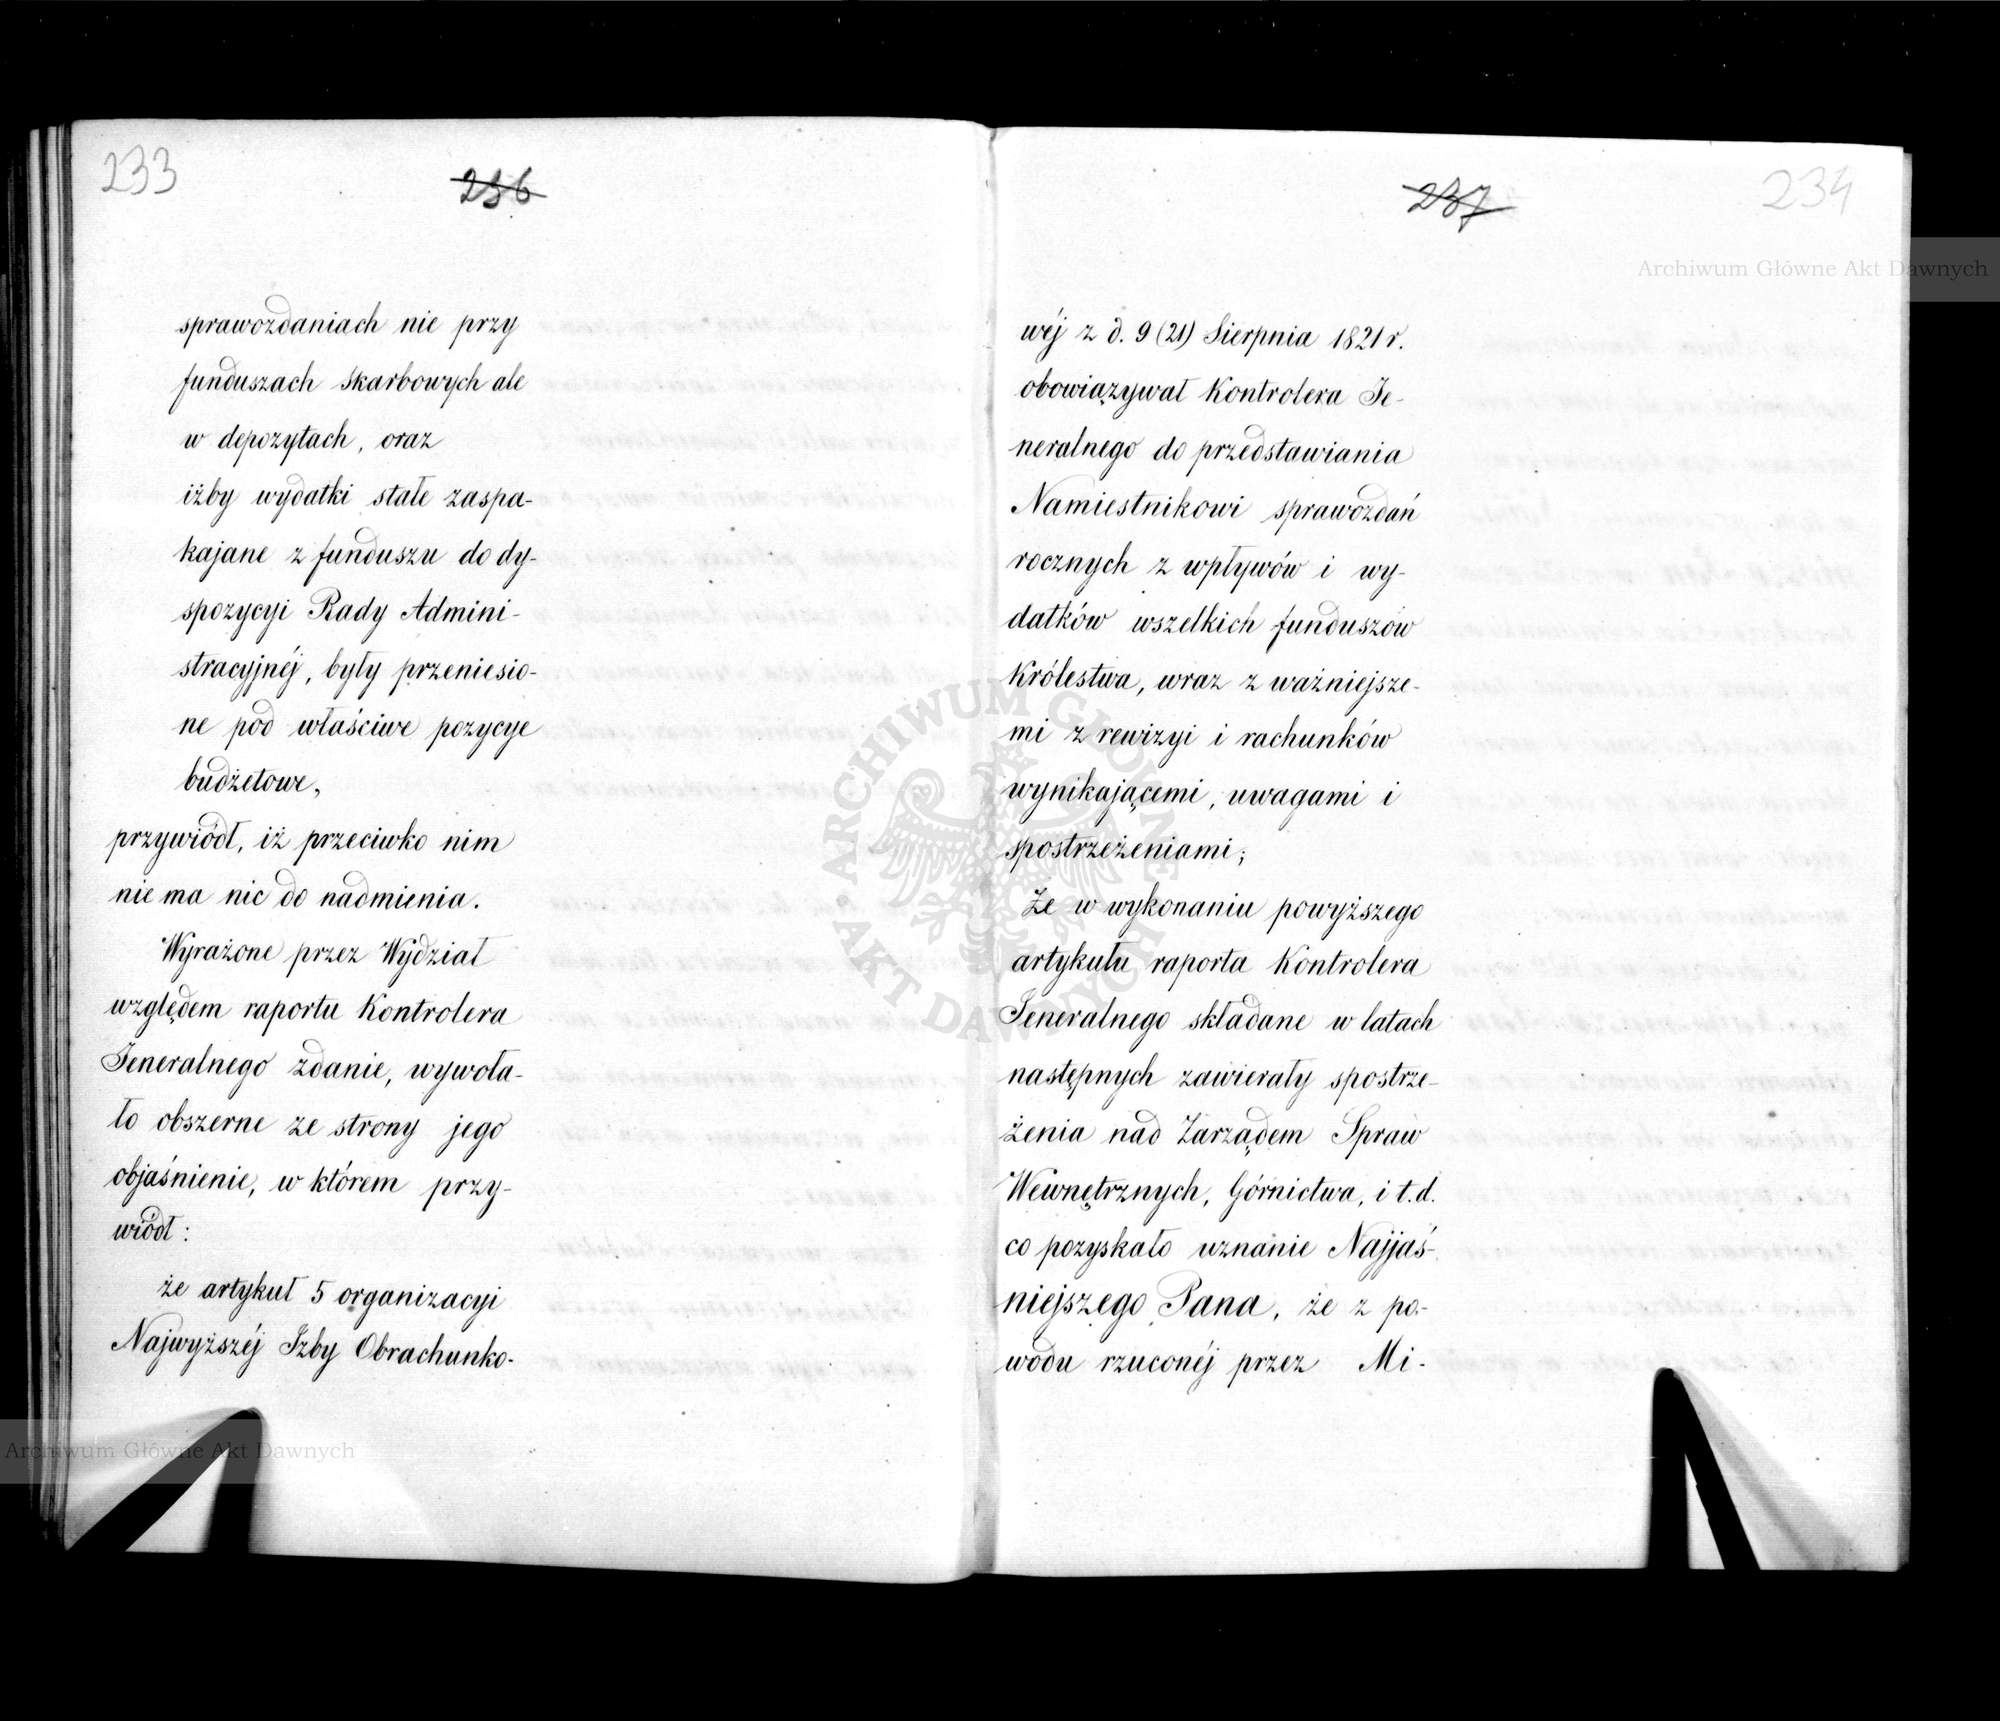 233
236
sprawozdaniach nie przy
funduszach skarbowych ale
w depozytach, oraz
iżby wydatki stałe zaspa-
kajane z funduszu do dy-
spozycyi Rady Admini-
stracyjnéj, były przeniesio-
ne pod właściwe pozycye
budżetowe,
przywiódł, iż przeciwko nim
nie ma nic do nadmienia.
Wyrażone przez Wydział
względem raportu Kontrolera
Jeneralnego zdanie, wywoła-
ło obszerne ze strony jego
objaśnienie, w którem przy-
wiódł:
że artykuł 5 organizacyi
Najwyższéj Izby Obrachunko-
237
234
wéj z d. 9 (21) Sierpnia 1821 r.
obowiązywał Kontrolera Je-
neralnego do przedstawiania
Namiestnikowi sprawozdań
rocznych z wpływów i wy-
datków wszelkich funduszów
Królestwa, wraz z ważniejsze-
mi z rewizyi i rachunków
wynikającemi, uwagami i
spostrzeżeniami;
Że w wykonaniu powyższego
artykułu raporta Kontrolera
Jeneralnego składane w latach
następnych zawierały spostrze-
żenia nad Zarządem Spraw
Wewnętrznych, Górnictwa, i t. d.
co pozyskało uznanie Najjaś-
niejszego Pana, że z po-
wodu rzuconéj przez Mi-
Archiwum Główne Akt Dawnych
Archiwum Główne Akt Dawnych
ARCHIWUM GŁÓWNE
AKT DAWNYCH